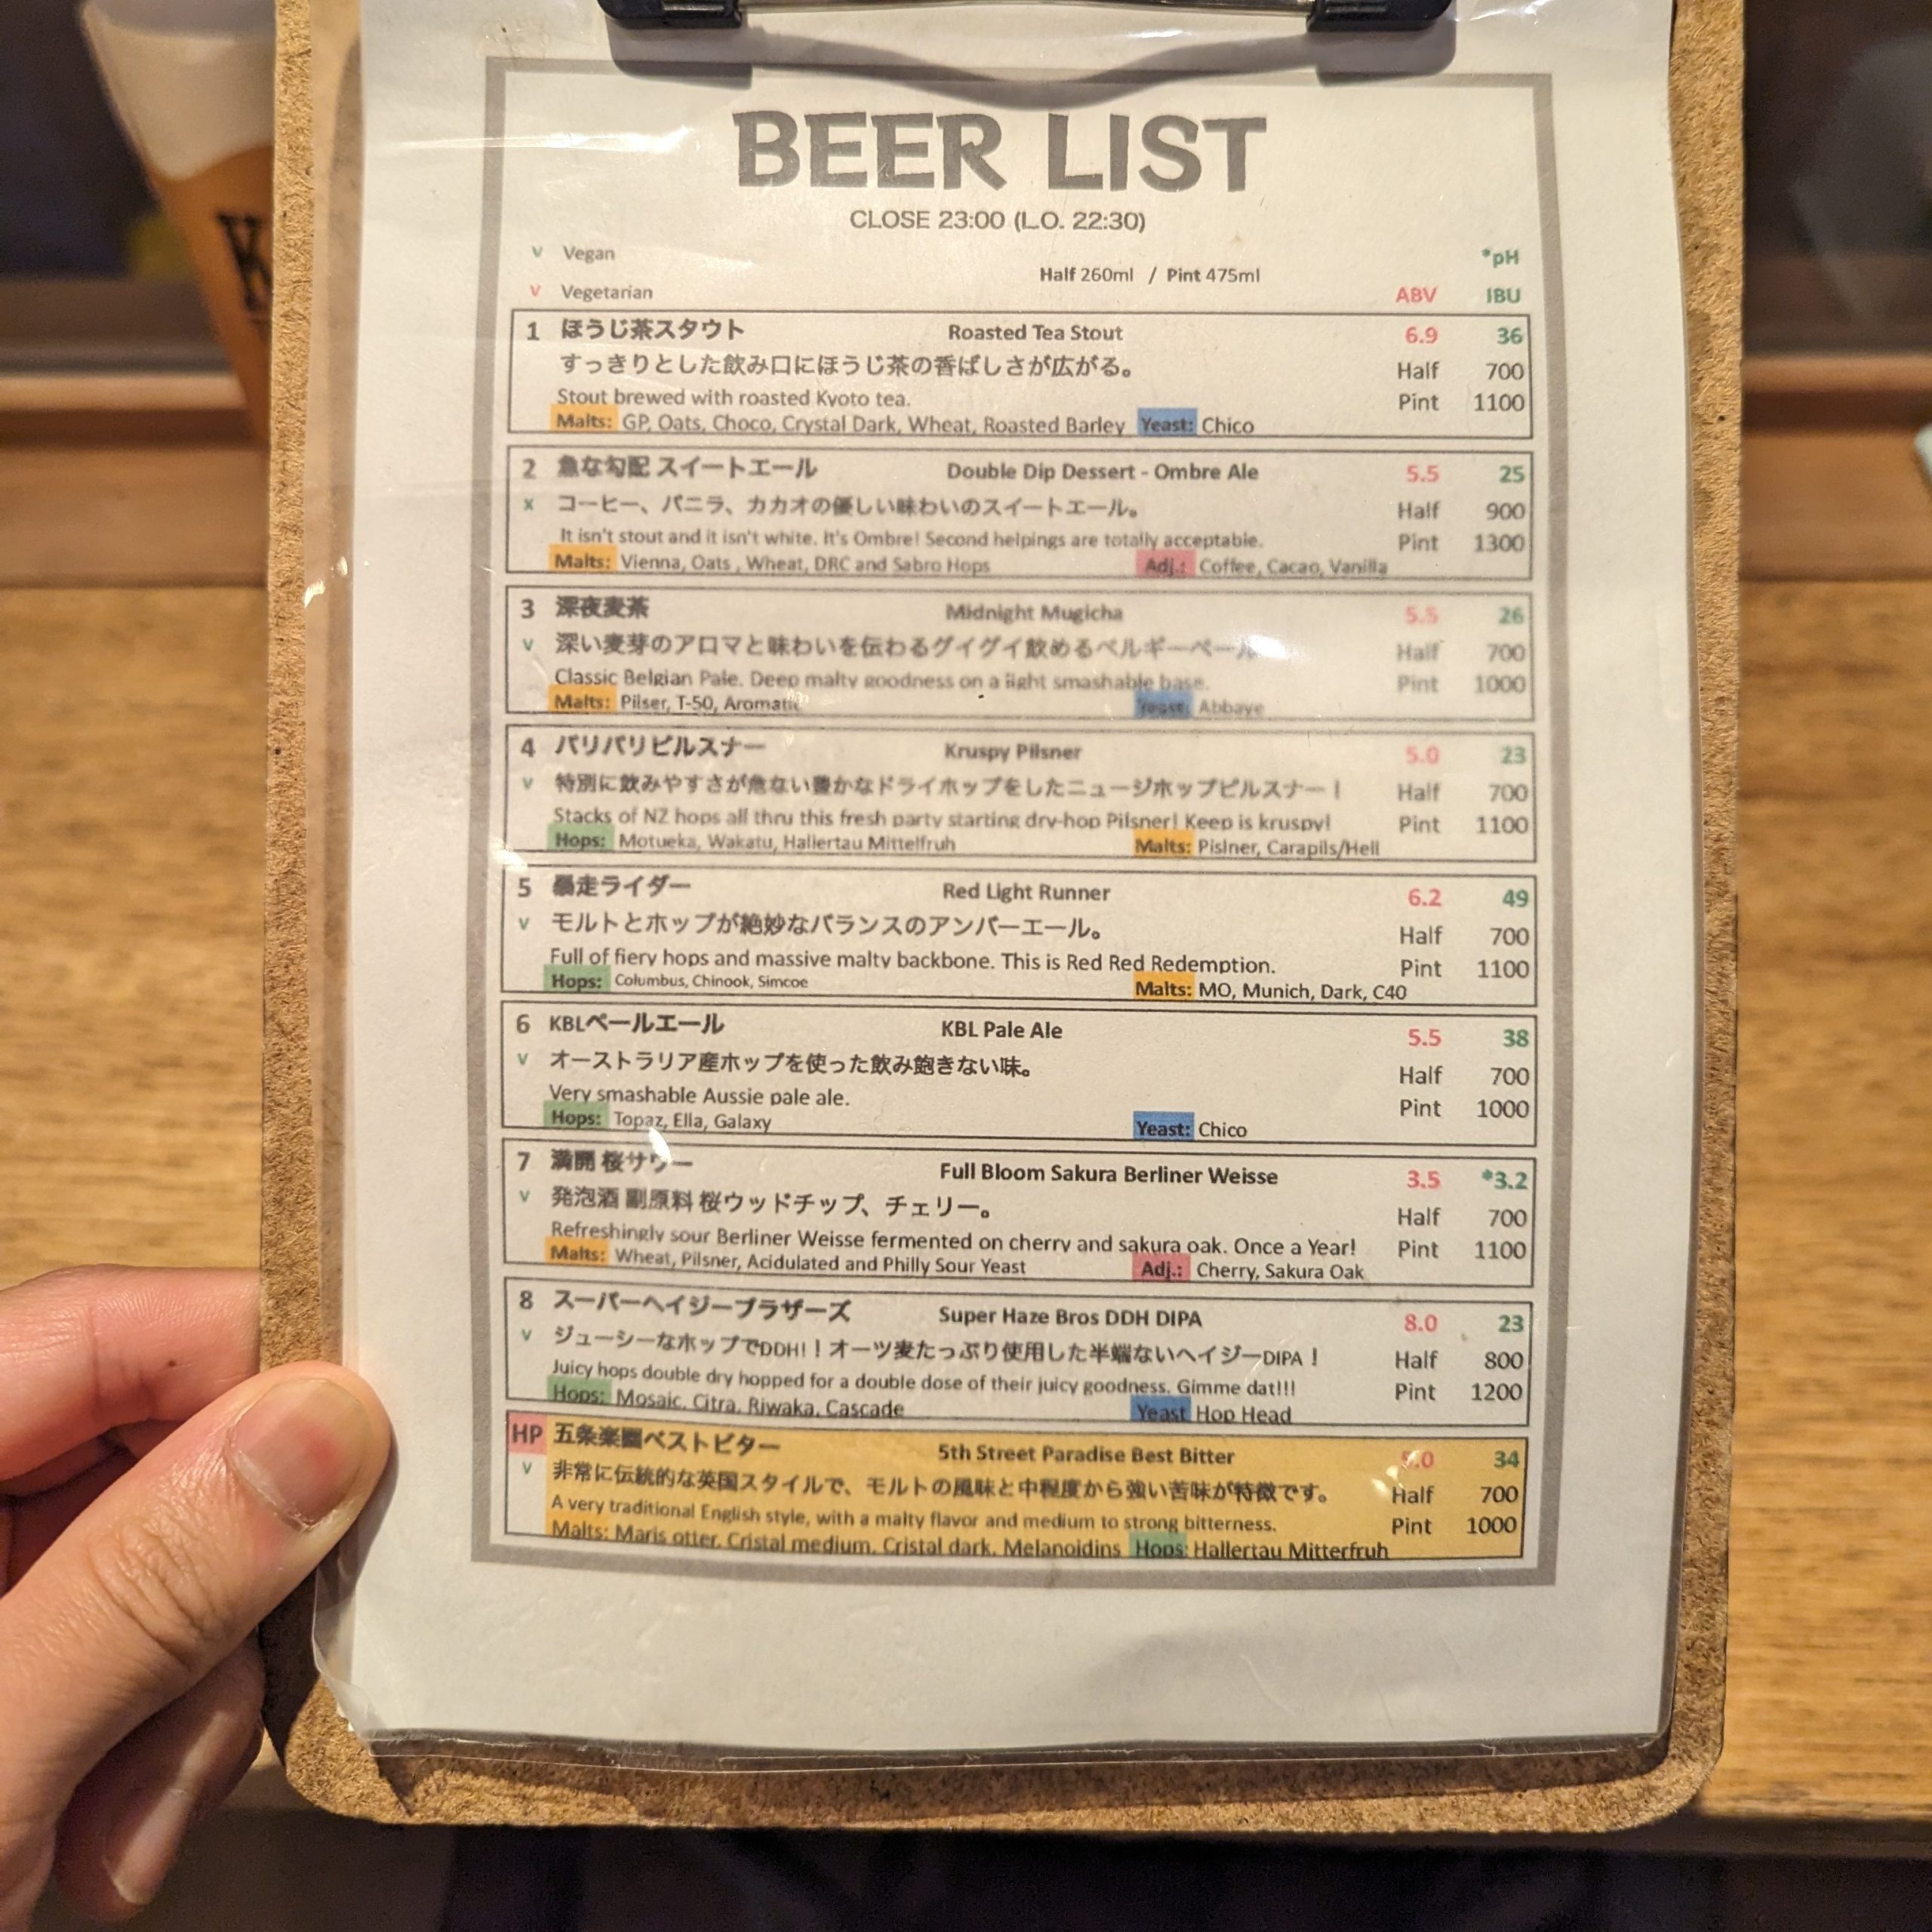 BEER LIST
CLOSE 23:00 (L.O. 22:30)
v Vegan
*pH
Half 260ml / Pint 475ml
v Vegetarian
ABV IBU
1 ほうじ茶スタウト Roasted Tea Stout 6.9 36
すっきりとした飲み口にほうじ茶の香ばしさが広がる。 Half 700
Stout brewed with roasted Kyoto tea. Pint 1100
Malts: GP, Oats, Choco, Crystal Dark, Wheat, Roasted Barley Yeast: Chico
2 急な勾配 スイートエール Double Dip Dessert - Ombre Ale 5.5 25
x コーヒー、バニラ、カカオの優しい味わいのスイートエール。 Half 900
It isn't stout and it isn't white. It's Ombre! Second helpings are totally acceptable. Pint 1300
Malts: Vienna, Oats , Wheat, DRC and Sabro Hops Adj.: Coffee, Cacao, Vanilla
3 深夜麦茶 Midnight Mugicha 5.5 26
v 深い麦芽のアロマと味わいを伝わるグイグイ飲めるベルギーペール Half 700
Classic Belgian Pale. Deep malty goodness on a light smashable base. Pint 1000
Malts: Pilser, T-50, Aromatic Yeast: Abbaye
4 パリパリピルスナー Kruspy Pilsner 5.0 23
v 特別に飲みやすさが危ない豊かなドライホップをしたニュージホップピルスナー！ Half 700
Stacks of NZ hops all thru this fresh party starting dry-hop Pilsner! Keep is kruspy! Pint 1100
Hops: Motueka, Wakatu, Hallertau Mittelfruh Malts: Pislner, Carapils/Hell
5 暴走ライダー Red Light Runner 6.2 49
v モルトとホップが絶妙なバランスのアンバーエール。 Half 700
Full of fiery hops and massive malty backbone. This is Red Red Redemption. Pint 1100
Hops: Columbus, Chinook, Simcoe Malts: MO, Munich, Dark, C40
6 KBLペールエール KBL Pale Ale 5.5 38
v オーストラリア産ホップを使った飲み飽きない味。 Half 700
Very smashable Aussie pale ale. Pint 1000
Hops: Topaz, Ella, Galaxy Yeast: Chico
7 満開 桜サワー Full Bloom Sakura Berliner Weisse 3.5 *3.2
v 発泡酒 副原料 桜ウッドチップ、チェリー。 Half 700
Refreshingly sour Berliner Weisse fermented on cherry and sakura oak. Once a Year! Pint 1100
Malts: Wheat, Pilsner, Acidulated and Philly Sour Yeast Adj.: Cherry, Sakura Oak
8 スーパーヘイジーブラザーズ Super Haze Bros DDH DIPA 8.0 23
v ジューシーなホップでDDH!！オーツ麦たっぷり使用した半端ないヘイジーDIPA！ Half 800
Juicy hops double dry hopped for a double dose of their juicy goodness. Gimme dat!!! Pint 1200
Hops: Mosaic, Citra, Riwaka, Cascade Yeast Hop Head
HP 五条楽園ベストビター 5th Street Paradise Best Bitter 34
v 非常に伝統的な英国スタイルで、モルトの風味と中程度から強い苦味が特徴です。 Half 700
A very traditional English style, with a malty flavor and medium to strong bitterness. Pint 1000
Malts: Maris otter, Cristal medium, Cristal dark, Melanoidins Hops: Hallertau Mitterfruh